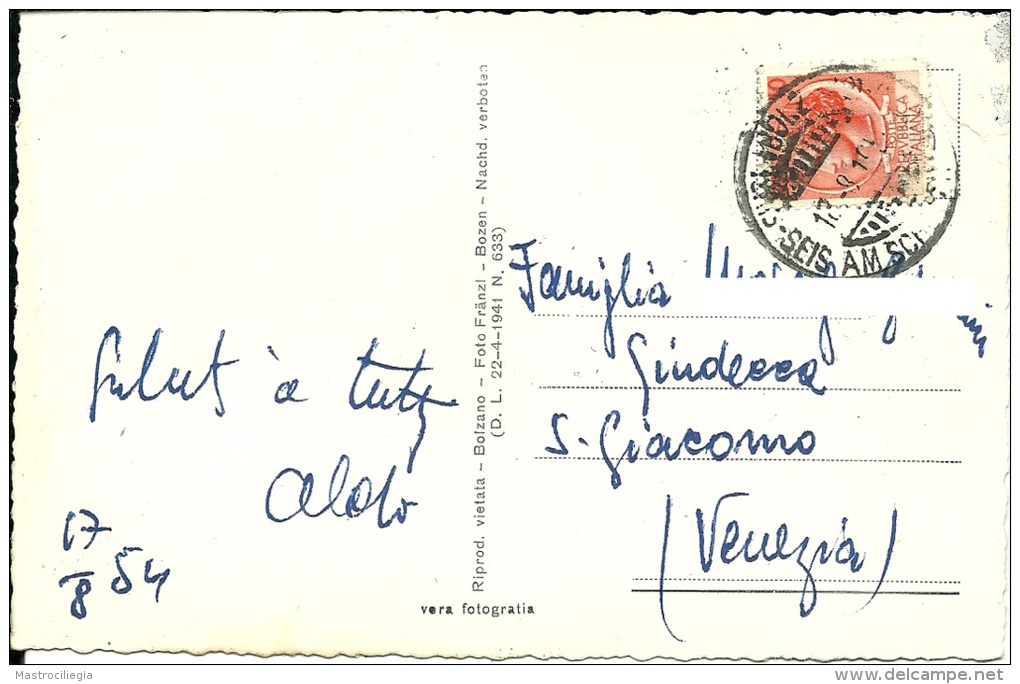 Saluti a tutti
Aldo
17
8 54
Riprod. vietata – Bolzano – Foto Fränzl – Bozen – Nachd. verboten
(D. L. 22-4-1941 N. 633)
vera fotografia
POSTE
REPVBBLICA
ITALIANA
SEIS AM SCI
Famiglia
Giudecca
S. Giacomo
(Venezia)
Mastrociliegia
www.delcampe.net